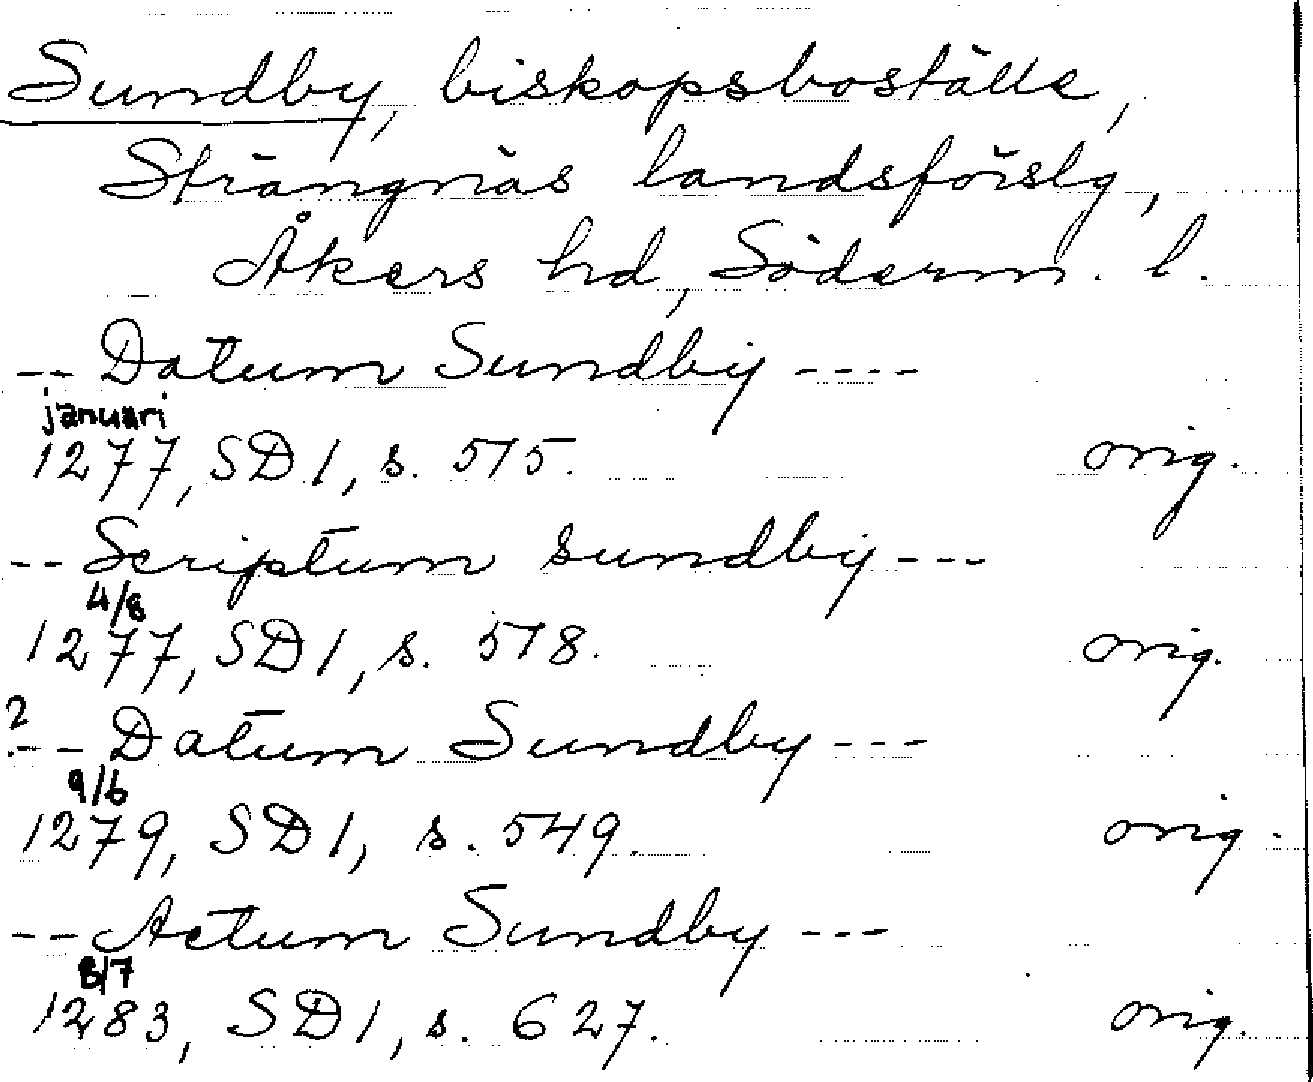 Sundby, biskopsboställe,
Strängnäs landsförslg,
Åkers hd, Söderm. l.
-- Datum Sundby ----
januari
1277, SD 1, s. 515. orig.
-- Scriptum sundby ---
4/8
1277, SD 1, s. 518. orig.
?
-- Datum Sundby ---
9/6
1279, SD 1, s. 549. orig.
-- Actum Sundby ---
8/7
1283, SD 1, s. 627. orig.